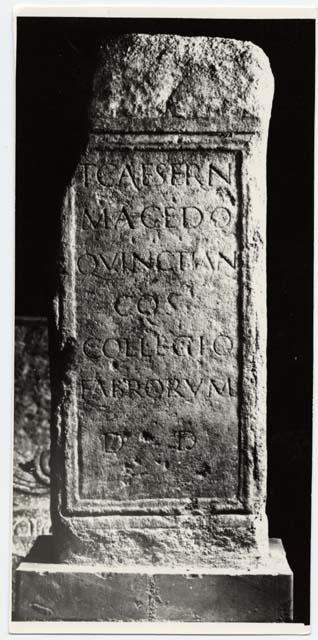 T CAESERN
MACEDO
QVINCTIAN
COS
COLLEGIO
FABRORVM
D D